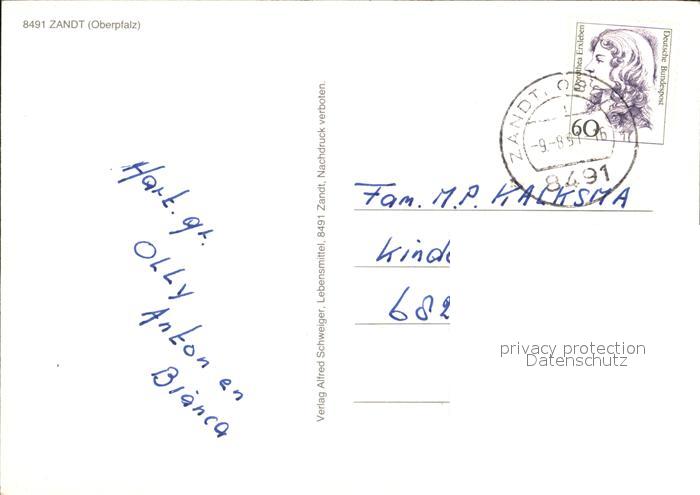 8491 ZANDT (Oberpfalz)
Dorothea Erxleben
Deutsche Bundespost
60
ZANDT, O
-9.-8.91-16
8491
Hart. gr.
OLLY
Anton en
Bianca
Verlag Alfred Schweiger, Lebensmittel, 8491 Zandt, Nachdruck verboten.
Fam. M.P. KALKSMA
Kinde
682
privacy protection
Datenschutz